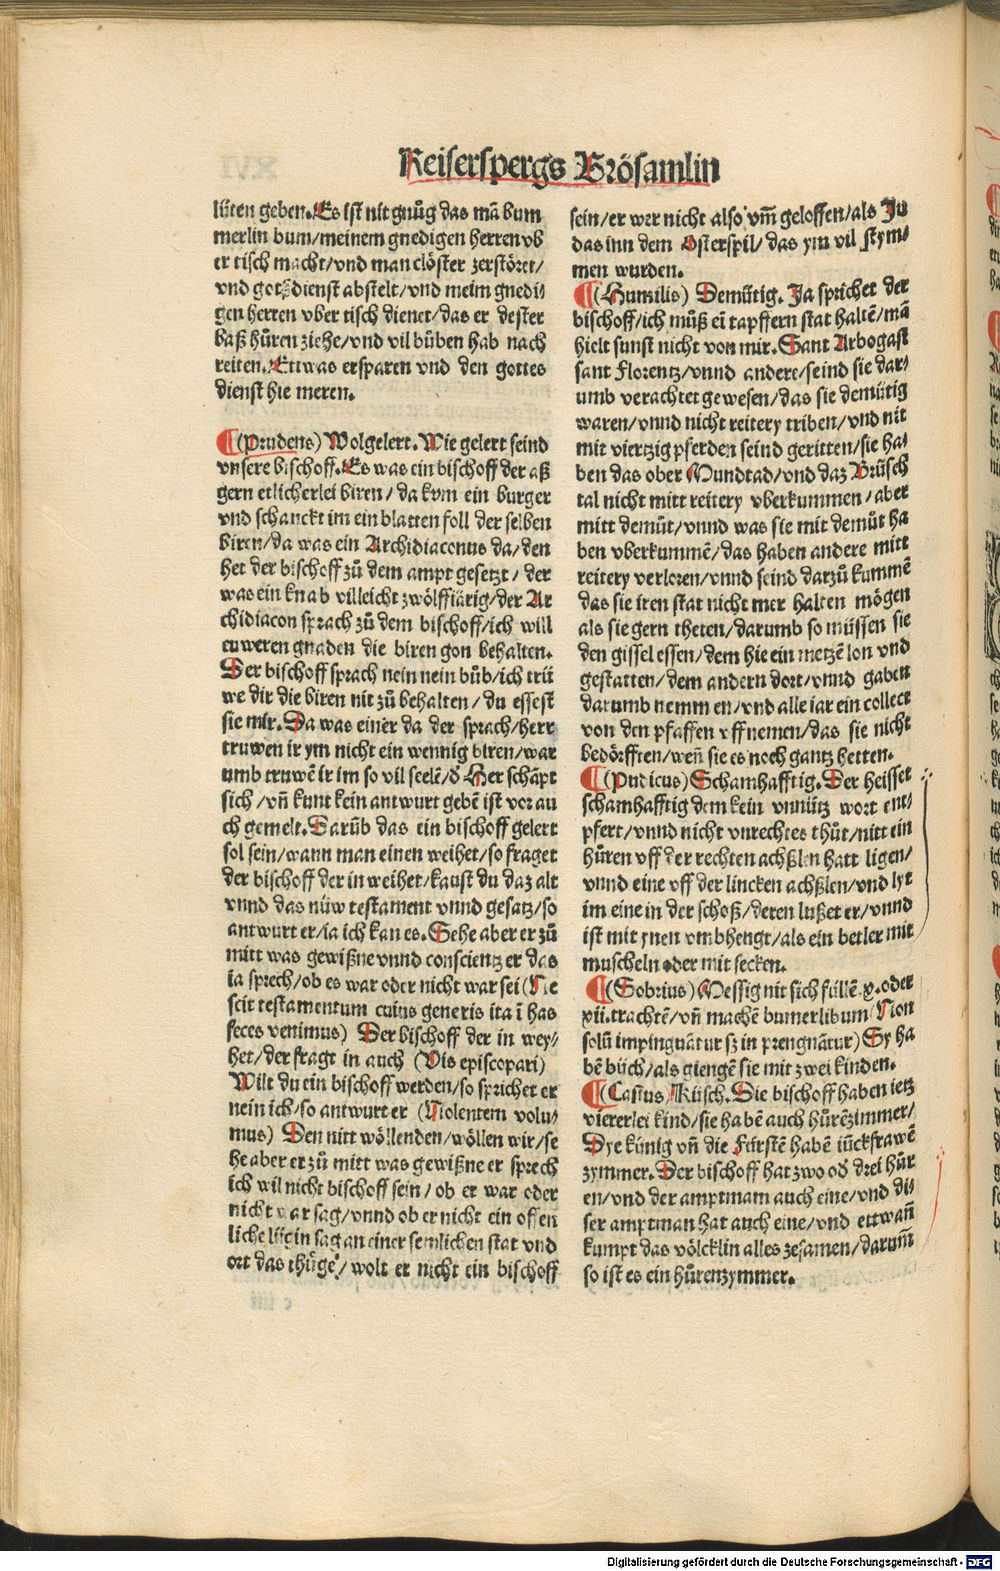 Keiserspergs Brösamlin
lüten geben. Es ist nit gnůg das mā bum
merlin bum/meinem gnedigen herren vb
er tisch macht/vnd man clöster zerstöret/
vnd gotzdienst abstelt/vnd meim gnedi⸗
gen herren vber tisch dienet/das er dester
baß hůren ziehe/vnd vil bůben hab nach
reiten. Ettwas ersparen vnd den gottes
dienst hie meren.
¶(Prudens) Wolgelert. Wie gelert seind
vnsere bischoff. Es was ein bischoff der aß
gern etlicherlei biren/da kvm ein burger
vnd schanckt im ein blatten foll der selben
biren/da was ein Archidiaconus da/den
het der bischoff zů dem ampt gesetzt/der
was ein knab villeicht zwölffiärig/der Ar
chidiacon sprach zů dem bischoff/ich will
euweren gnaden die biren gon behalten.
Der bischoff sprach nein nein bůb/ich trü
we dir die biren nit zů behalten/du essest
sie mir. Da was einer da der sprach/herr
truwen ir ym nicht ein wennig biren/war
umb truwē ir im so vil seelē/d Her schāpt
sich/vñ kunt kein antwurt gebē ist vor au
ch gemelt. Darūb das ein bischoff gelert
sol sein/wann man einen weihet/so fraget
der bischoff der in weihet/kanst du daz alt
vnnd das nüw testament vnnd gesatz/so
antwurt er/ia ich kan es. Sehe aber er zů
mitt was gewißne vnnd conscientz er das
ia sprech/ob es war oder nicht war sei (Ne
scit testamentum cuius generis ita ī has
feces venimus) Der bischoff der in wey⸗
het/der fragt in auch (Vis episcopari)
Wilt du ein bischoff werden/so sprichet er
nein ich/so antwurt er (Nolentem volu⸗
mus) Den nitt wöllenden/wöllen wir/se
he aber er zů mitt was gewißne er sprech
ich wil nicht bischoff sein/ob er war oder
nicht war sag/vnnd ob er nicht ein offen
liche lügin sag an einer semlichen stat vnd
ort das thůge/wolt er nicht ein bischoff
sein/er wer nicht also vm̄ geloffen/als Ju
das inn dem Osterspil/das ym vil stym⸗
men wurden.
¶(Humilis) Demütig. Ja sprichet der
bischoff/ich můß eī tapffern stat haltē/mā
hielt sunst nicht von mir. Sant Arbogast
sant Florentz/vnnd andere/seind sie dar⸗
umb verachtet gewesen/das sie demütig
waren/vnnd nicht reitery triben/vnd nit
mit viertzig pferden seind geritten/sie ha⸗
ben das ober Mundtad/vnd daz Brüsch
tal nicht mitt reitery vberkummen/aber
mitt demůt/vnnd was sie mit demůt ha
ben vberkummē/das haben andere mitt
reitery verloren/vnnd seind darzů kummē
das sie iren stat nicht mer halten mögen
als sie gern theten/darumb so müssen sie
den gissel essen/dem hie ein metzē lon vnd
gestatten/dem andern dort/vnnd gaben
darumb nemmen/vnd alle iar ein collect
von den pfaffen vffnemen/das sie nicht
bedörfften/weñ sie es noch gantz hetten.
¶(Pudicus) Schamhafftig. Der heisset
schamhafftig dem kein vnnütz wort ent⸗
pfert/vnnd nicht vnrechtes thůt/nitt ein
hůren vff der rechten achßlen hatt ligen/
vnnd eine vff der lincken achßlen/vnd lyt
im eine in der schoß/deren lußet er/vnnd
ist mit ynen vmbhengt/als ein betler mit
muscheln oder mit secken.
¶(Sobrius) Messig nit sich füllē. x. oder
xii. trachtē/vñ machē bumerlibum (Non
solū impinguātur sz in prengnātur) Sy ha
bē büch/als giengē sie mit zwei kinden.
¶(Castus) Küsch. Die bischoff haben ietz
viererlei kind/sie habē auch hůrēzimmer/
Dye künig vñ die Fürstē habē iūckfrawē
zymmer. Der bischoff hat zwo od drei hůr
en/vnd der amptmam auch eine/vnd di⸗
ser amptman hat auch eine/vnd ettwañ
kumpt das völcklin alles zesamen/darum̄
so ist es ein hůrenzymmer.
Digitalisierung gefördert durch die Deutsche Forschungsgemeinschaft - DFG